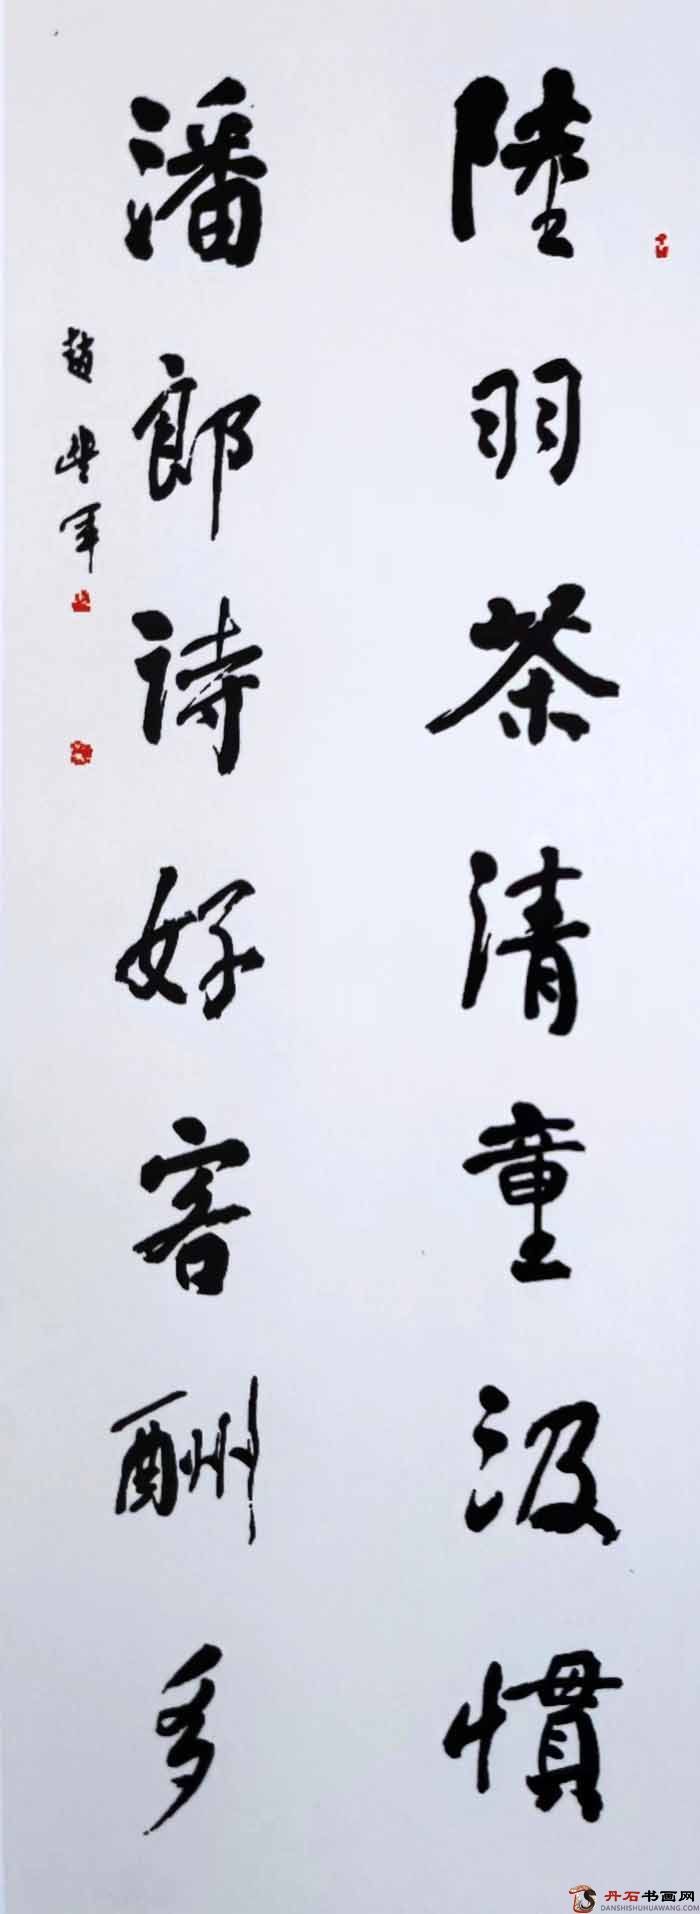 陸羽茶清童汲慣
潘郎詩好客酬多
丹石书画网
DANSHISHUHUAWANG.COM